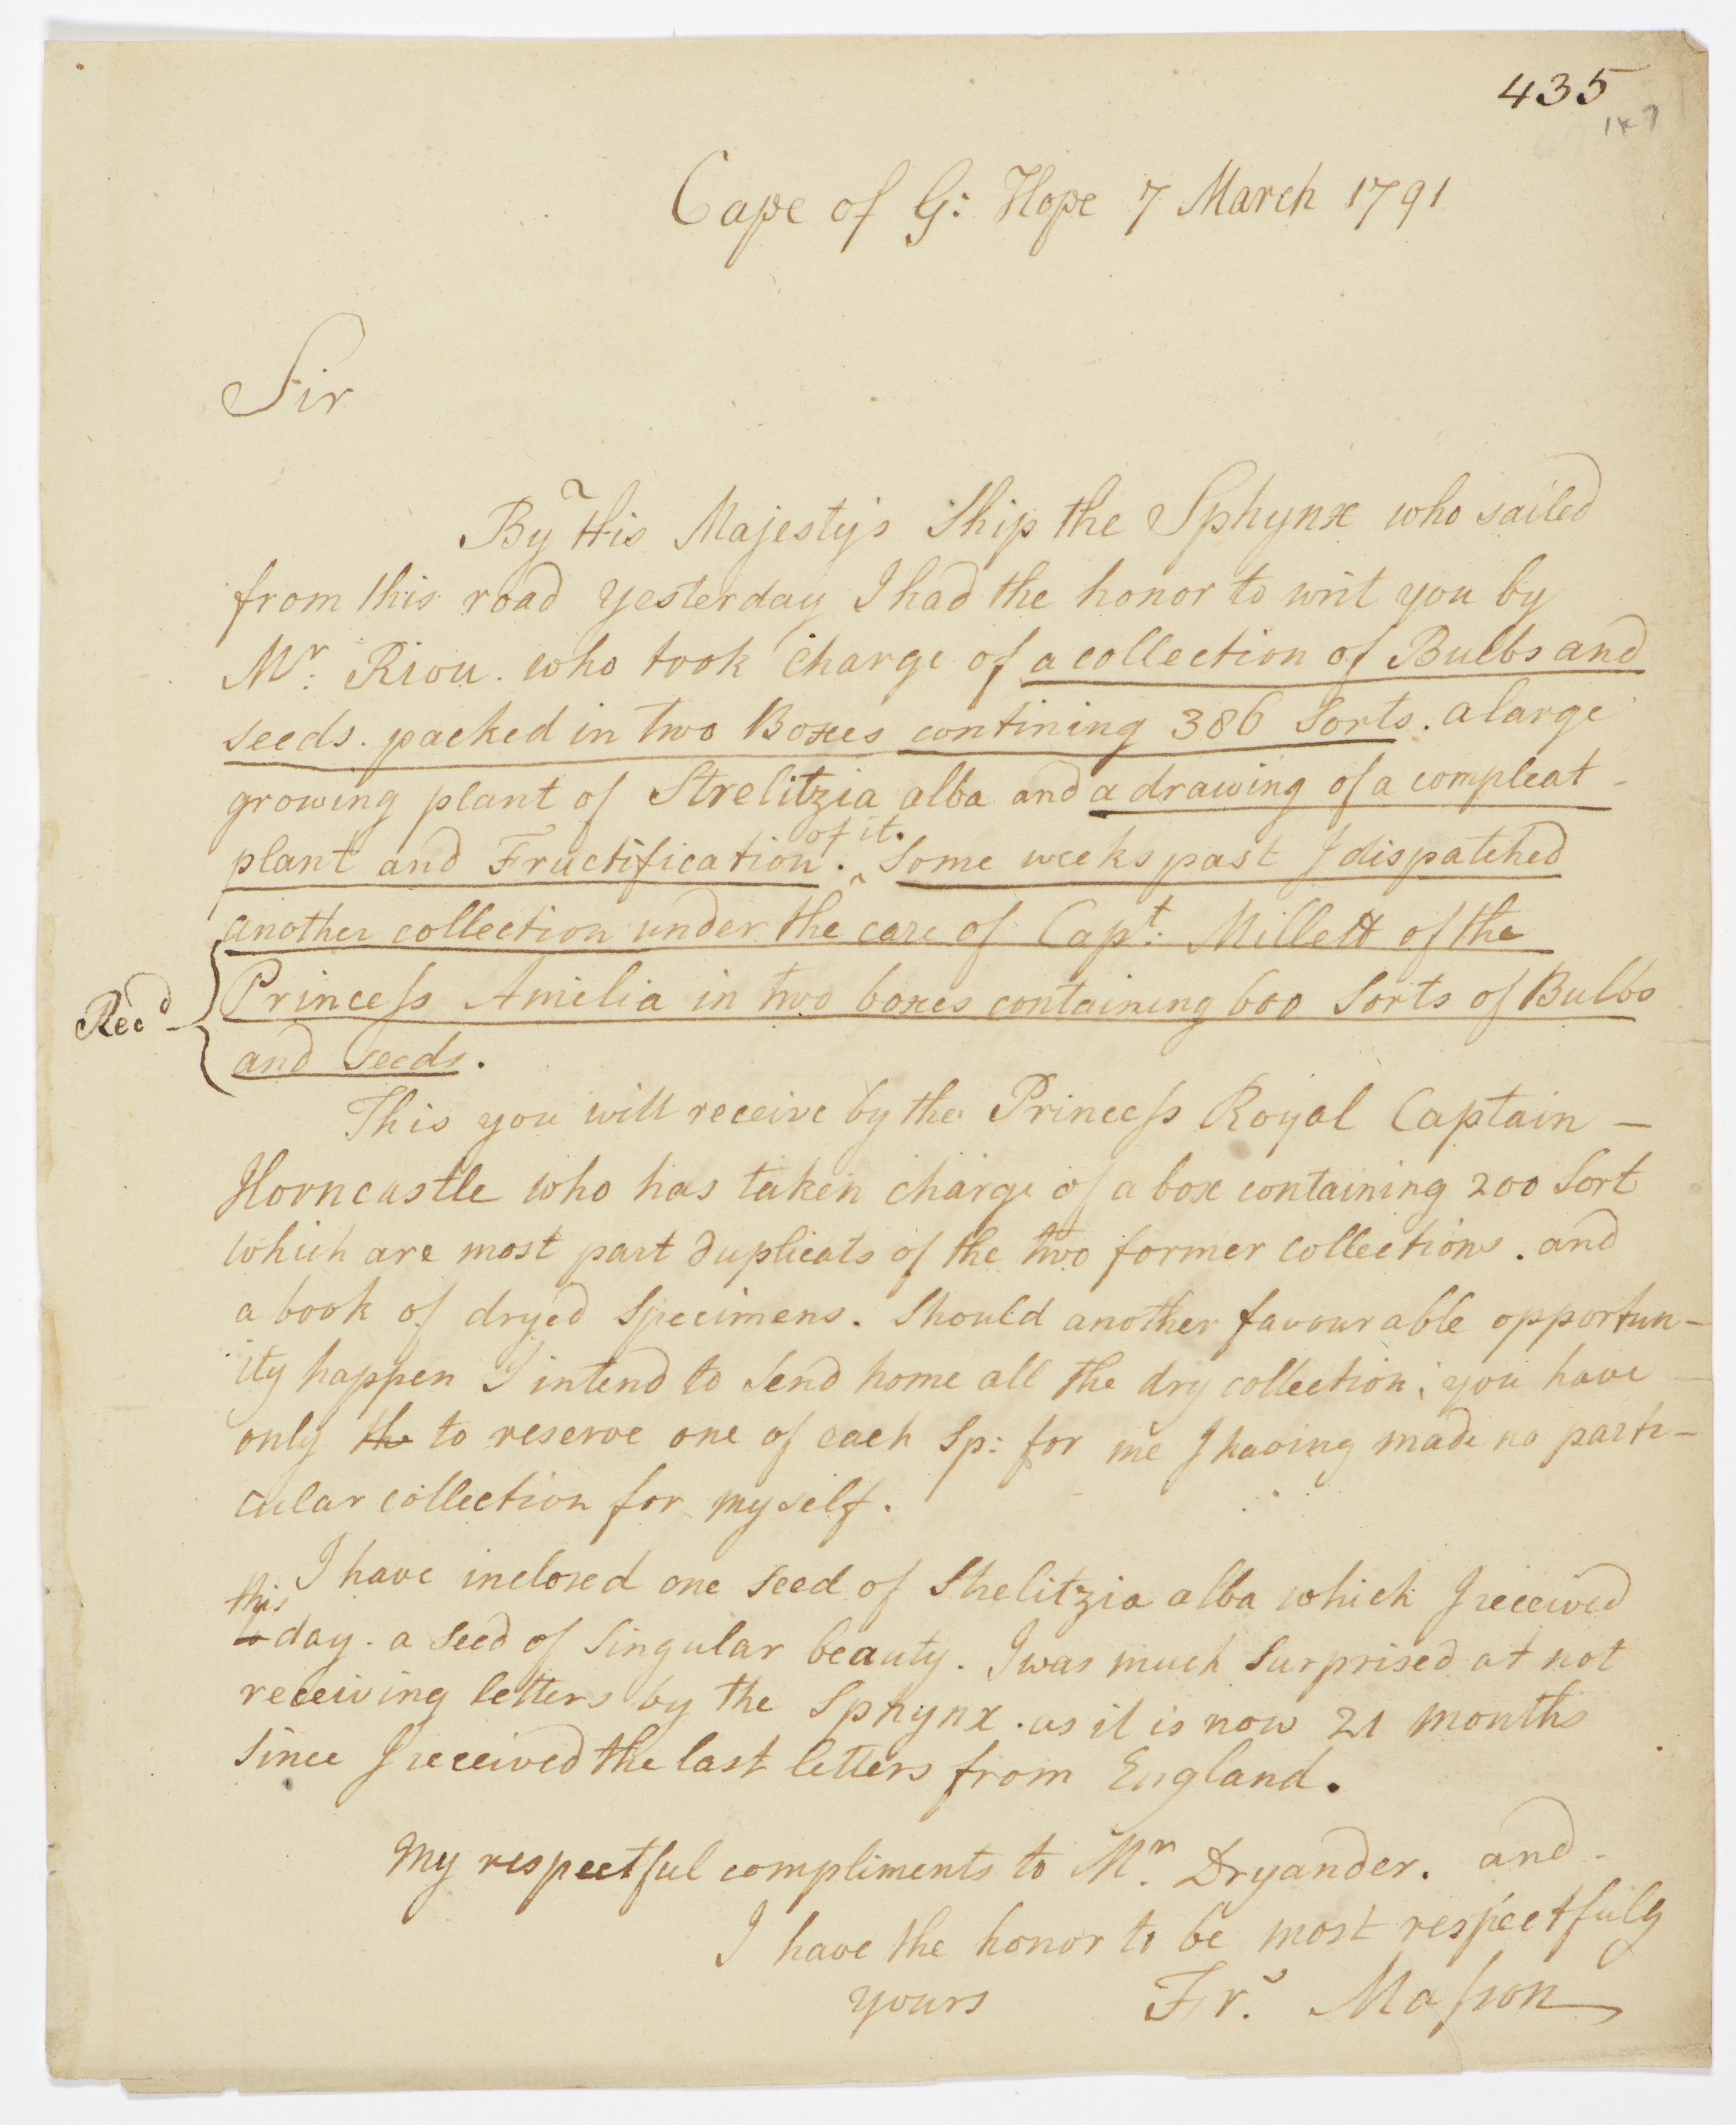 435
147
Cape of G: Hope 7 March 1791
Sir
By His Majestys Ship the Sphynx who sailed
from this road yesterday I had the honor to writ you by
Mr: Riou. who took charge of a collection of Bulbs and
seeds. packed in two Boxes contining 386 Sorts. a large
growing plant of Strelitzia alba and a drawing of a compleat -
of it.
plant and Fructification. ^ Some weeks past I dispatched
another collection under the care of Capt: Millett of the
Princess Amelia in two boxes containing 600 Sorts of Bulbs
Recd - and seeds.
This you will receive by the Princess Royal Captain -
Horncastle who has taken charge of a box containing 200 Sort
which are most part duplicats of the two former collections. and
a book of dryed Specimens. Should another favourable opportun-
ity happen I intend to Send home all the dry collection; you have
only the to reserve one of each Sp: for me I having made no parti-
cular collection for my self.
I have inclosed one Seed of Strelitzia alba which I received
this
to day. a Seed of Singular beauty. I was much Surprised at not
receiving letters by the Sphynx. as it is now 21 months
Since I received the last letters from England.
My respectful compliments to Mr. Dryander. and -
I have the honor to be most respectfuly
yours Frs. Masson